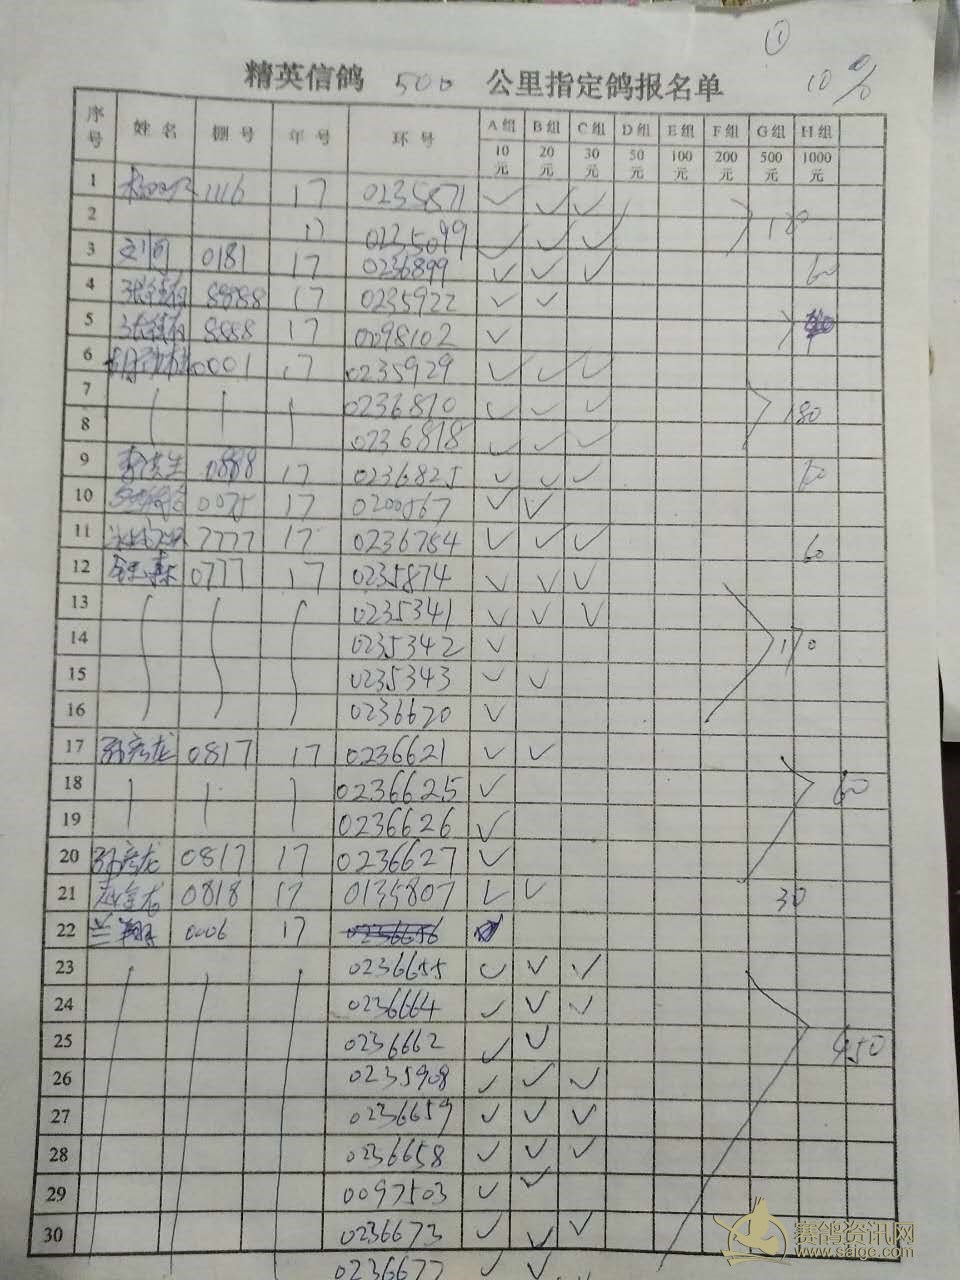 ①
精英信鸽 500 公里指定鸽报名单 10%
序号 姓名 棚号 年号 环号 A组 B组 C组 D组 E组 F组 G组 H组
10元 20元 30元 50元 100元 200元 500元 1000元
1 1116 17 0235871 ✓ ✓ ✓
2 17 ✓ ✓ ✓
3 0181 17 0236899 ✓ ✓ ✓ 60
4 8888 17 0235922 ✓ ✓
5 8888 17 0098102 ✓
6 0001 17 0235929 ✓ ✓ ✓
7 0236810 ✓ ✓ ✓ 180
8 0236818 ✓ ✓ ✓
9 0888 17 0236825 ✓ ✓ ✓ 60
10 0075 17 0200567 ✓ ✓
11 7777 17 0236754 ✓ ✓ ✓ 60
12 0777 17 0235874 ✓ ✓ ✓
13 0235341 ✓ ✓ ✓
14 0235342 ✓ 170
15 0235343 ✓ ✓
16 0236620 ✓
17 孙彦龙 0817 17 0236621 ✓ ✓
18 0236625 ✓ 60
19 0236626 ✓
20 孙彦龙 0817 17 0236627 ✓
21 0818 17 0135807 ✓ ✓ 30
22 兰翔 0006 17
23 0236655 ✓ ✓ ✓
24 0236664 ✓ ✓ ✓
25 0236662 ✓ ✓ 450
26 0235908 ✓ ✓ ✓
27 0236659 ✓ ✓ ✓
28 0236658 ✓ ✓ ✓
29 0097503 ✓ ✓
30 0236673 ✓ ✓ ✓
0236677 ✓ ✓
赛鸽资讯网
www.saige.com